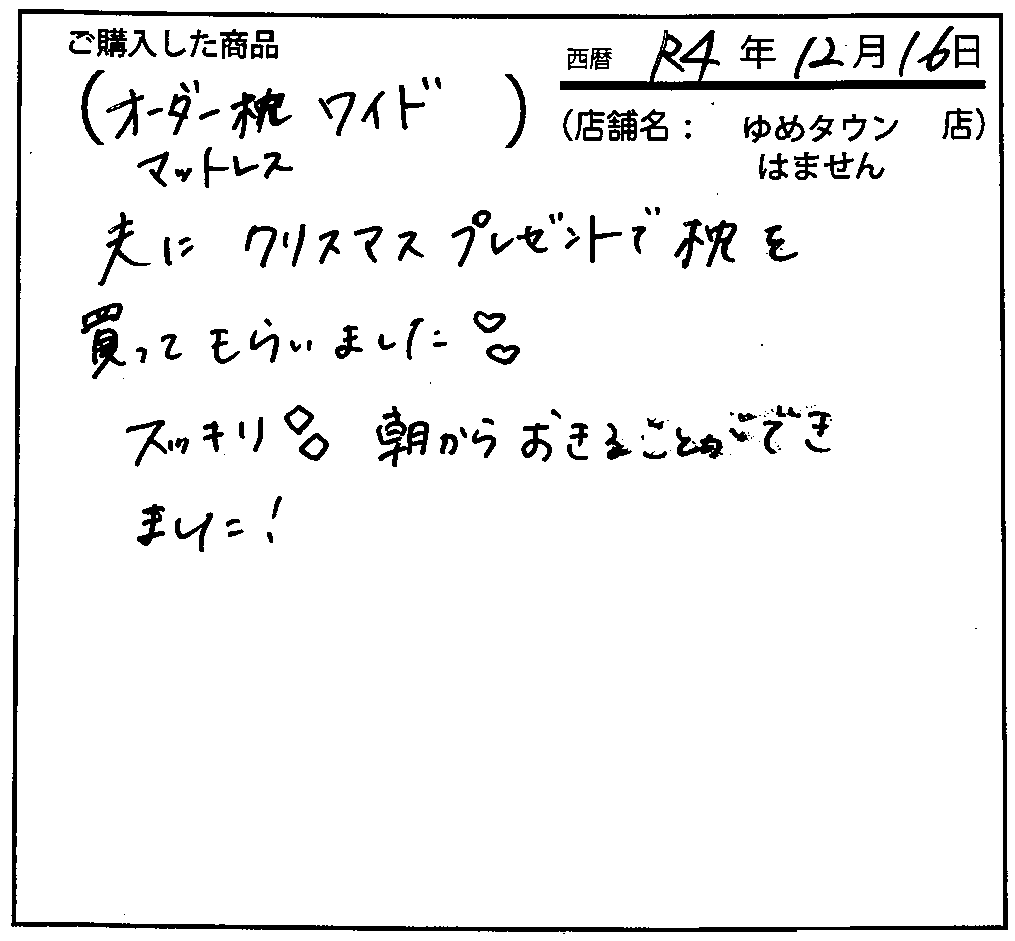 ご購入した商品
西暦 R4年12月16日
(オーダー枕 ワイド )
マットレス
(店舗名: ゆめタウン 店)
はません
夫に クリスマスプレゼントで枕を
買ってもらいました♡♡
スッキリ◇◇ 朝からおきることができ
ました!